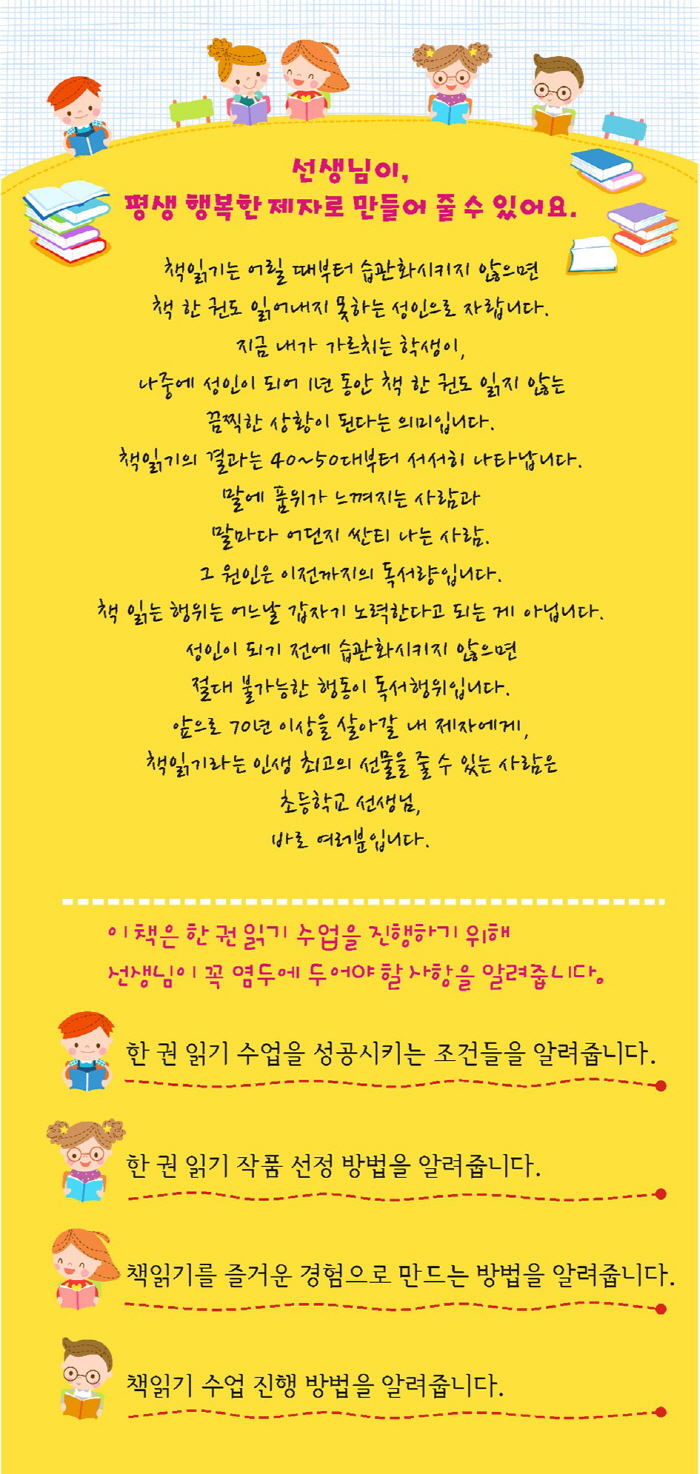 선생님이,
평생 행복한 제자로 만들어 줄 수 있어요.
책읽기는 어릴 때부터 습관화시키지 않으면
책 한 권도 읽어내지 못하는 성인으로 자랍니다.
지금 내가 가르치는 학생이,
나중에 성인이 되어 1년 동안 책 한 권도 읽지 않는
끔찍한 상황이 된다는 의미입니다.
책읽기의 결과는 40~50대부터 서서히 나타납니다.
말에 품위가 느껴지는 사람과
말마다 어딘지 싼티 나는 사람.
그 원인은 이전까지의 독서량입니다.
책 읽는 행위는 어느날 갑자기 노력한다고 되는 게 아닙니다.
성인이 되기 전에 습관화시키지 않으면
절대 불가능한 행동이 독서행위입니다.
앞으로 70년 이상을 살아갈 내 제자에게,
책읽기라는 인생 최고의 선물을 줄 수 있는 사람은
초등학교 선생님,
바로 여러분입니다.
이 책은 한 권 읽기 수업을 진행하기 위해
선생님이 꼭 염두에 두어야 할 사항을 알려줍니다.
한 권 읽기 수업을 성공시키는 조건들을 알려줍니다.
한 권 읽기 작품 선정 방법을 알려줍니다.
책읽기를 즐거운 경험으로 만드는 방법을 알려줍니다.
책읽기 수업 진행 방법을 알려줍니다.